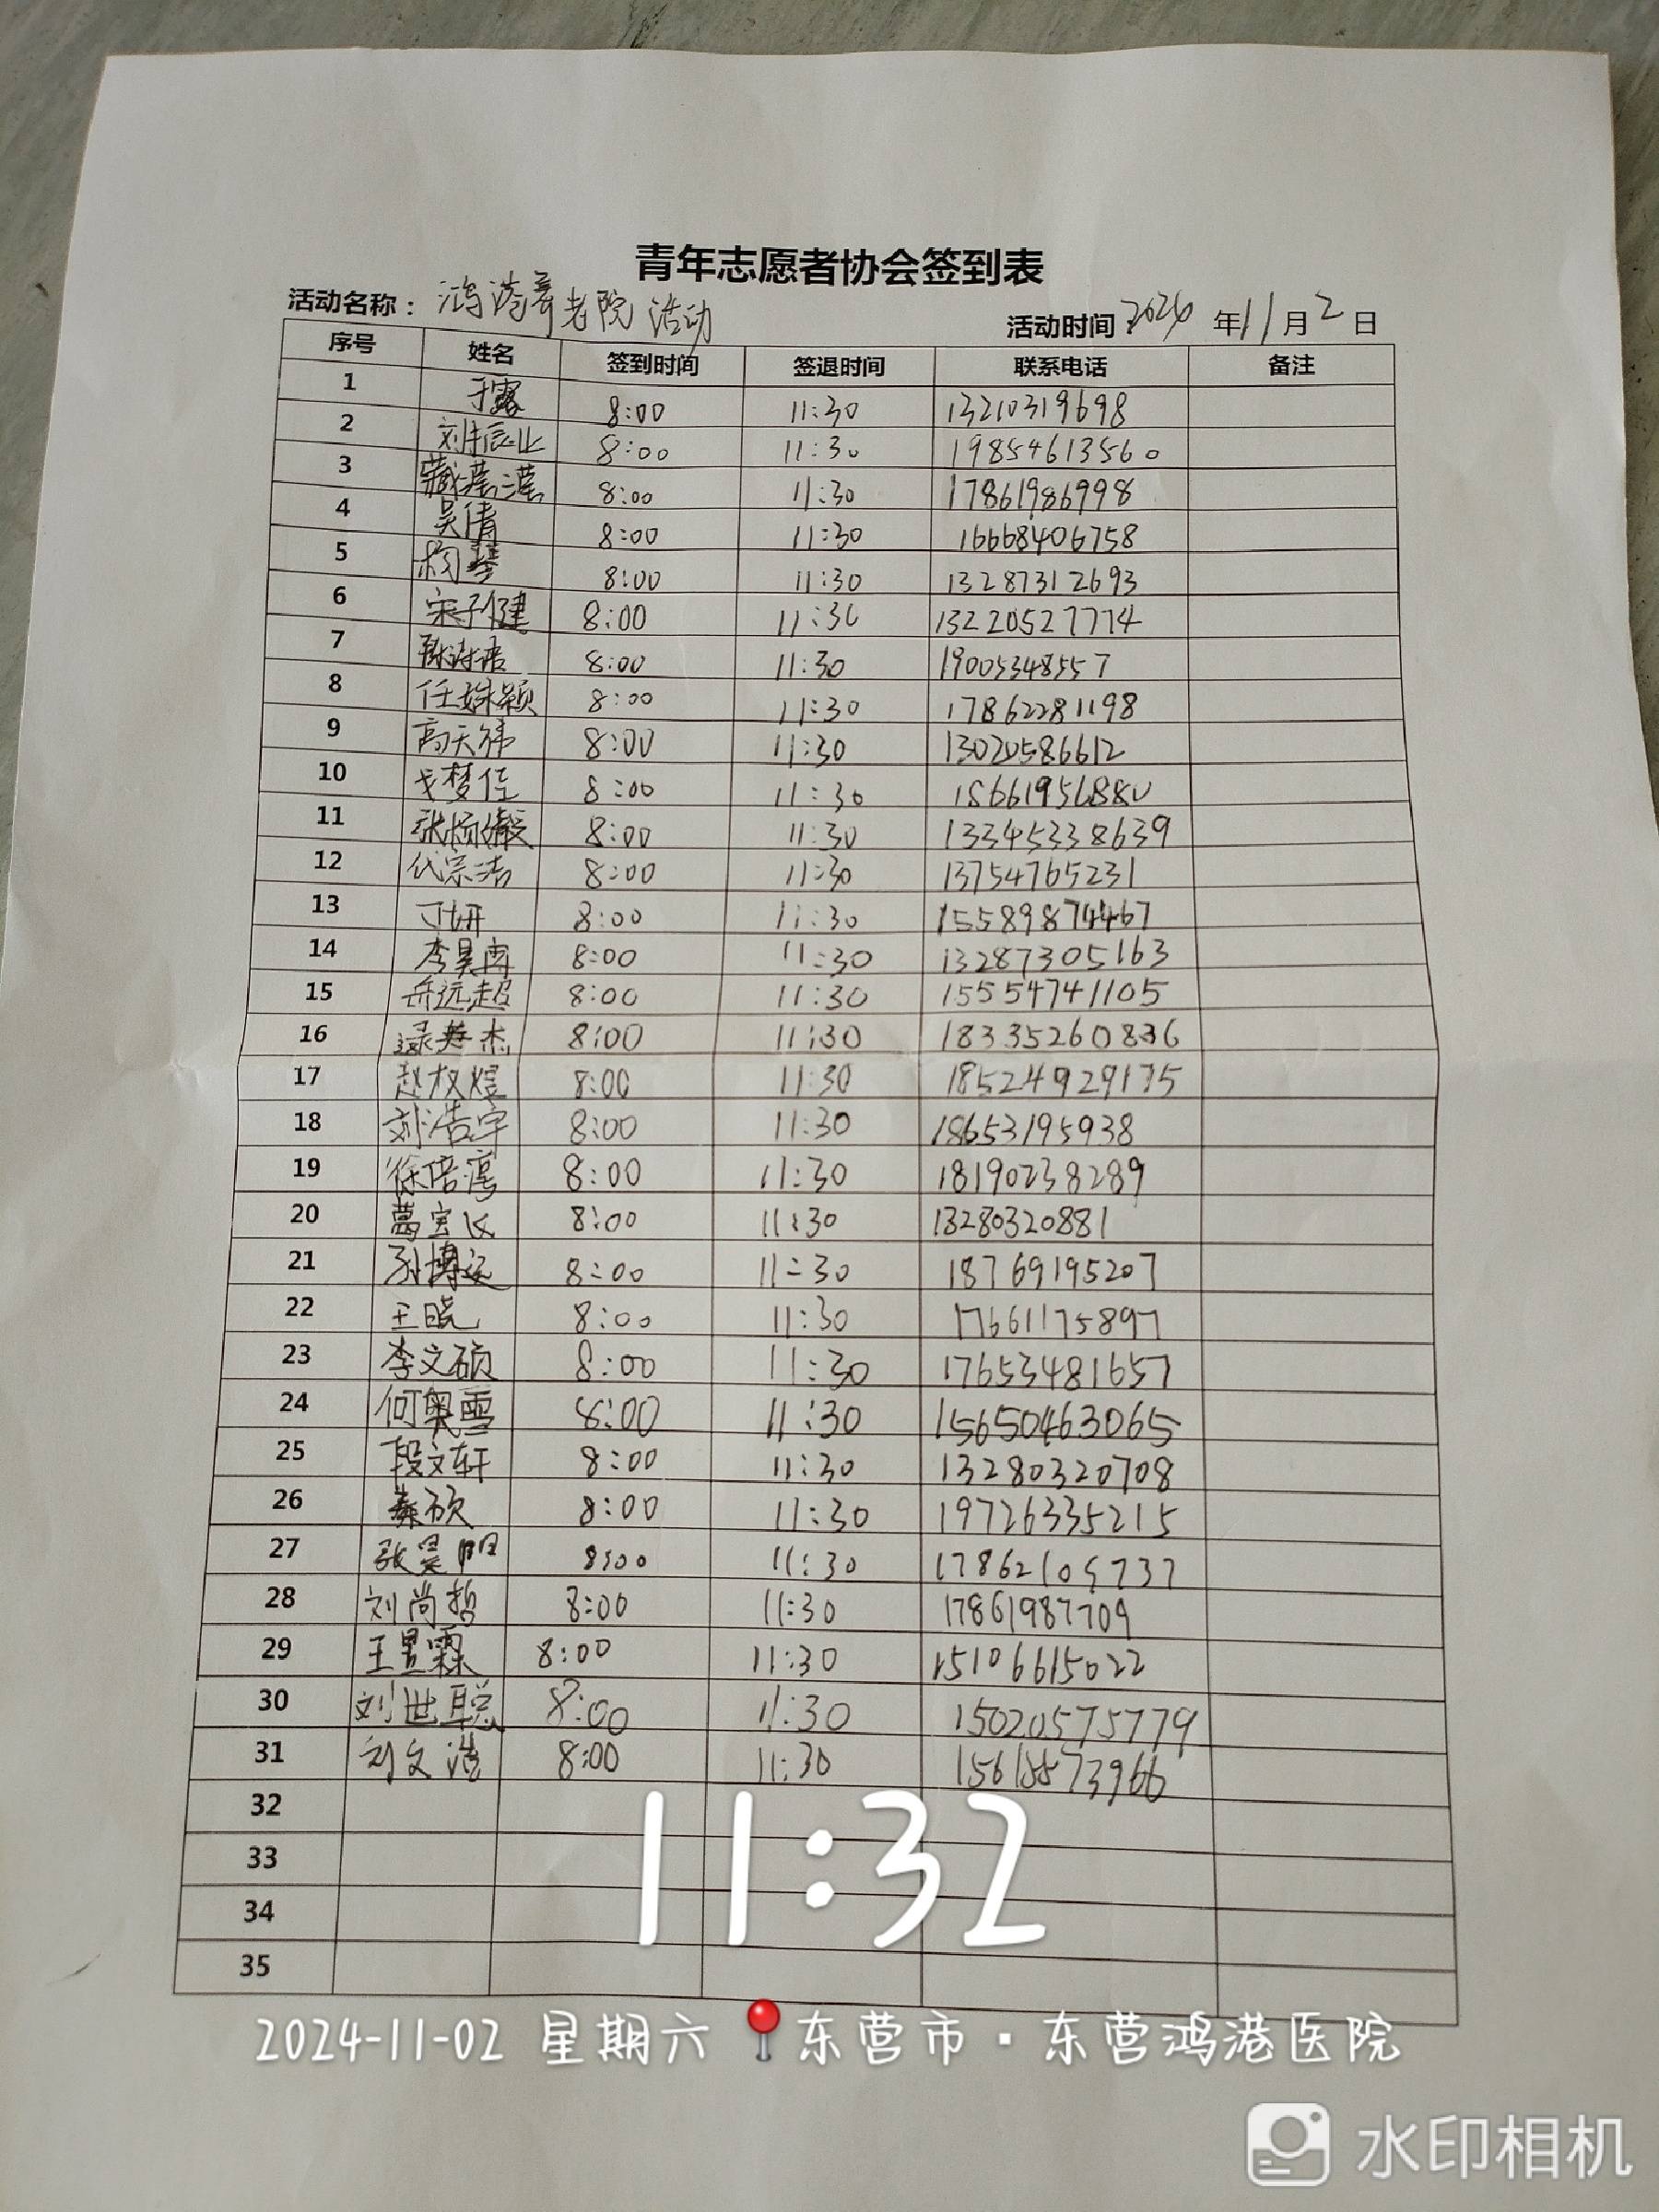 青年志愿者协会签到表
活动名称：鸿港养老院活动 活动时间：2024年11月2日
序号 姓名 签到时间 签退时间 联系电话 备注
1 于露 8:00 11:30 13210319698
2 8:00 11:30 19854613560
3 臧滢滢 8:00 11:30 17861986998
4 吴倩 8:00 11:30 16668406758
5 8:00 11:30 13287312693
6 宋子健 8:00 11:30 13220527774
7 8:00 11:30 19005348557
8 任姝颖 8:00 11:30 17862281198
9 高天祎 8:00 11:30 13020586612
10 戈梦佳 8:00 11:30
11 8:00 11:30 13345338639
12 代宗浩 8:00 11:30 13754765231
13 丁妍 8:00 11:30 15589874467
14 李昊冉 8:00 11:30 13287305163
15 岳远超 8:00 11:30 15554741105
16 逯英杰 8:00 11:30 18335260836
17 赵权煜 8:00 11:30 18524929175
18 刘浩宇 8:00 11:30 18653195938
19 徐培鸿 8:00 11:30 18190238289
20 葛宝仪 8:00 11:30 13280320881
21 孙博远 8:00 11:30 18769195207
22 王晓 8:00 11:30 17661175897
23 李文硕 8:00 11:30 17653481657
24 何奥雪 8:00 11:30 15650463065
25 段文轩 8:00 11:30 13280320708
26 秦硕 8:00 11:30 19726335215
27 张昊明 8:00 11:30 17862105737
28 刘尚哲 8:00 11:30 17861987709
29 王昱霖 8:00 11:30 15106615022
30 刘世聪 8:00 11:30 15020575779
31 刘文浩 8:00 11:30
32
33
34
35
11:32
2024-11-02 星期六 东营市·东营鸿港医院
水印相机